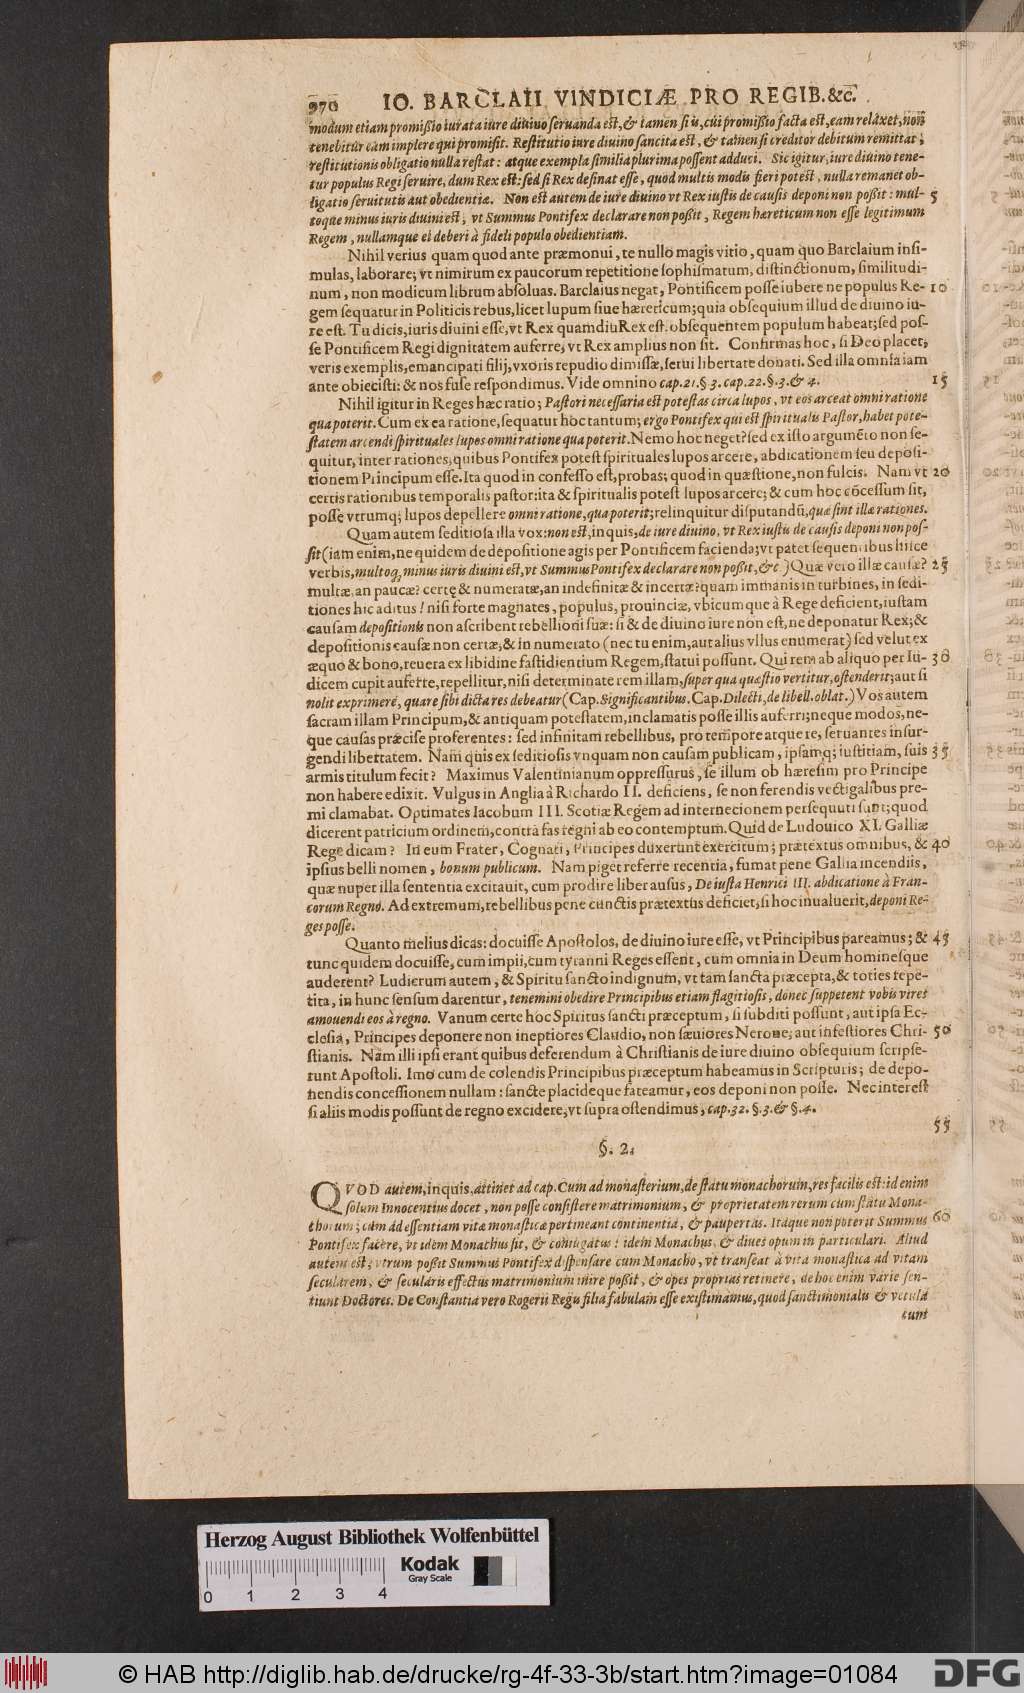 970 IO. BARCLAII VINDICIÆ PRO REGIB.&c.
modum etiam promißio iurata iure diuino seruanda est, & tamen si is, cui promißio facta est, eam relaxet, non
tenebitur eam implere qui promisit. Restitutio iure diuino sancita est, & tamen si creditor debitum remittat,
restitutionis obligatio nulla restat: atque exempla similia plurima possent adduci. Sic igitur, iure diuino tene-
tur populus Regi seruire, dum Rex est: sed si Rex desinat esse, quod multis modis fieri potest, nulla remanet ob-
ligatio seruitutis aut obedientiæ. Non est autem de iure diuino vt Rex iustis de causis deponi non poßit: mul- 5
toque minus iuris diuini est, vt Summus Pontifex declarare non poßit, Regem hæreticum non esse legitimum
Regem, nullamque ei deberi à fideli populo obedientiam.
Nihil verius quam quod ante præmonui, te nullo magis vitio, quam quo Barclaium insi-
mulas, laborare; vt nimirum ex paucorum repetitione sophismatum, distinctionum, similitudi-
num, non modicum librum absoluas. Barclaius negat, Pontificem posse iubere ne populus Re- 10
gem sequatur in Politicis rebus, licet lupum siue hæreticum; quia obsequium illud de diuino iu-
re est. Tu dicis, iuris diuini esse, vt Rex quamdiu Rex est. obsequentem populum habeat; sed pos-
se Pontificem Regi dignitatem auferre, vt Rex amplius non sit. Confirmas hoc, si Deo placet,
veris exemplis, emancipati filij, vxoris repudio dimissæ, serui libertate donati. Sed illa omnia iam
ante obiecisti: & nos fuse respondimus. Vide omnino cap. 21. §. 3. cap. 22. §. 3. & 4. 15
Nihil igitur in Reges hæc ratio; Pastori necessaria est potestas circa lupos, vt eos arceat omni ratione
qua poterit. Cum ex ea ratione, sequatur hoc tantum; ergo Pontifex qui est spiritualis Pastor, habet pote-
statem arcendi spirituales lupos omni ratione qua poterit. Nemo hoc neget? sed ex isto argumēto non se-
quitur, inter rationes, quibus Pontifex potest spirituales lupos arcere, abdicationem seu deposi-
tionem Principum esse. Ita quod in confesso est, probas; quod in quæstione, non fulcis. Nam vt 20
certis rationibus temporalis pastor: ita & spiritualis potest lupos arcere; & cum hoc cōcessum sit,
posse vtrumq; lupos depellere omni ratione, qua poterit; relinquitur disputandū, quæ sint illæ rationes.
Quam autem seditiosa illa vox: non est, inquis, de iure diuino, vt Rex iustis de causis deponi non pos-
sit (iam enim, ne quidem de depositione agis per Pontificem facienda; vt patet sequentibus hisce
verbis, multoq, minus iuris diuini est, vt Summus Pontifex declarare non poßit, &c.) Quæ vero illæ causæ? 25
multæ, an paucæ? certę & numeratæ, an indefinitæ & incertæ? quam immanis in turbines, in sedi-
tiones hic aditus! nisi forte magnates, populus, prouinciæ, vbicumque à Rege deficient, iustam
causam depositionis non ascribent rebellioni suæ: si & de diuino iure non est, ne deponatur Rex; &
depositionis causæ non certæ, & in numerato (nec tu enim, aut alius vllus enumerat) sed velut ex
æquo & bono, reuera ex libidine fastidientium Regem, statui possunt. Qui rem ab aliquo per Iu- 30
dicem cupit auferre, repellitur, nisi determinate rem illam, super qua quæstio vertitur, ostenderit; aut si
nolit exprimere, quare sibi dicta res debeatur (Cap. Significantibus. Cap. Dilecti, de libell. oblat.) Vos autem
sacram illam Principum, & antiquam potestatem, inclamatis posse illis auferri; neque modos, ne-
que causas præcise proferentes: sed infinitam rebellibus, pro tempore atque re, seruantes insur-
gendi libertatem. Nam quis ex seditiosis vnquam non causam publicam, ipsamq; iustitiam, suis 35
armis titulum fecit? Maximus Valentinianum oppressurus, se illum ob hæresim pro Principe
non habere edixit. Vulgus in Anglia à Richardo II. deficiens, se non ferendis vectigalibus pre-
mi clamabat. Optimates Iacobum III. Scotiæ Regem ad internecionem persequuti sunt; quod
dicerent patricium ordinem, contra fas regni ab eo contemptum. Quid de Ludouico XI. Galliæ
Rege dicam? In eum Frater, Cognati, Principes duxerunt exercitum; prætextus omnibus, & 40
ipsius belli nomen, bonum publicum. Nam piget referre recentia, fumat pene Gallia incendiis,
quæ nuper illa sententia excitauit, cum prodire liber ausus, De iusta Henrici III. abdicatione à Fran-
corum Regno. Ad extremum, rebellibus pene cunctis prætextus deficiet, si hoc inualuerit, deponi Re-
ges posse.
Quanto melius dicas: docuisse Apostolos, de diuino iure esse, vt Principibus pareamus; & 45
tunc quidem docuisse, cum impii, cum tyranni Reges essent, cum omnia in Deum hominesque
auderent? Ludicrum autem, & Spiritu sancto indignum, vt tam sancta præcepta, & toties repe-
tita, in hunc sensum darentur, tenemini obedire Principibus etiam flagitiosis, donec suppetent vobis vires
amouendi eos à regno. Vanum certe hoc Spiritus sancti præceptum, si subditi possunt, aut ipsa Ec-
clesia, Principes deponere non ineptiores Claudio, non sæuiores Nerone; aut infestiores Chri- 50
stianis. Nam illi ipsi erant quibus deferendum à Christianis de iure diuino obsequium scripse-
runt Apostoli. Imo cum de colendis Principibus præceptum habeamus in Scripturis; de depo-
nendis concessionem nullam: sancte placideque fateamur, eos deponi non posse. Nec interest
si aliis modis possunt de regno excidere, vt supra ostendimus, cap. 32. §. 3. & §. 4.
55
§. 2.
QVOD autem, inquis, attinet ad cap. Cum ad monasterium, de statu monachorum, res facilis est: id enim
solum Innocentius docet, non posse consistere matrimonium, & proprietatem rerum cum statu Mona-
chorum; cum ad essentiam vitæ monasticæ pertineant continentia, & paupertas. Itaque non poterit Summus 60
Pontifex facere, vt idem Monachus sit, & coniugatus: idem Monachus, & diues opum in particulari. Aliud
autem est, vtrum poßit Summus Pontifex dispensare cum Monacho, vt transeat à vita monastica ad vitam
secularem, & secularis effectus matrimonium inire poßit, & opes proprias retinere, de hoc enim varie sen-
tiunt Doctores. De Constantia vero Rogerii Regis filia fabulam esse existimamus, quod sanctimonialis & vetula
cum
Herzog August Bibliothek Wolfenbüttel
Kodak
Gray Scale
0 1 2 3 4
© HAB http://diglib.hab.de/drucke/rg-4f-33-3b/start.htm?image=01084
DFG